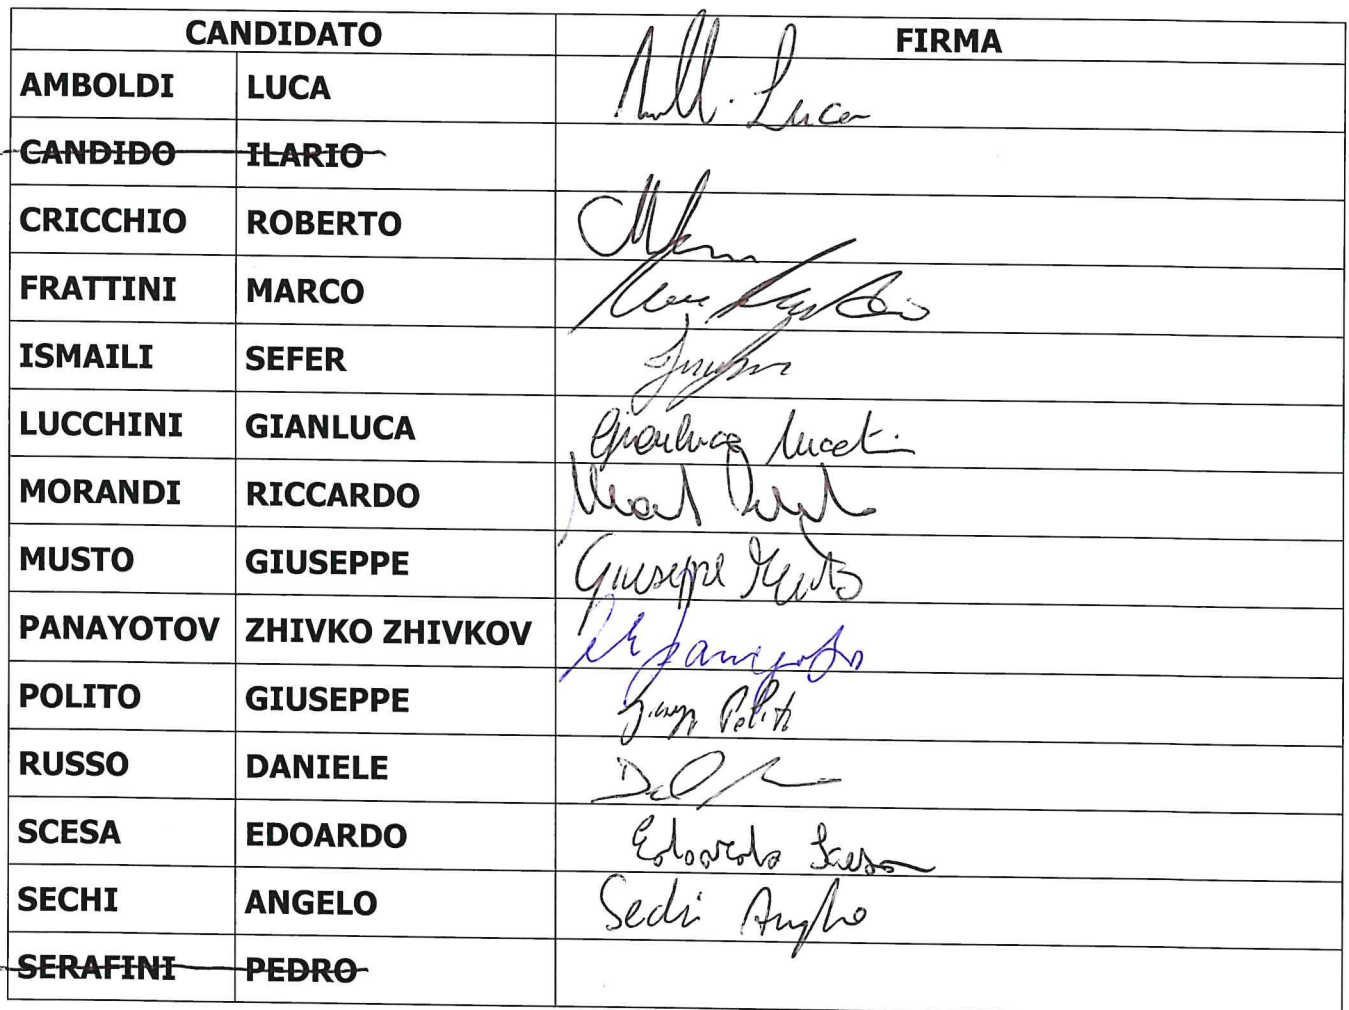 CANDIDATO FIRMA
AMBOLDI LUCA Luca
CANDIDO ILARIO
CRICCHIO ROBERTO
FRATTINI MARCO
ISMAILI SEFER
LUCCHINI GIANLUCA Gianluca
MORANDI RICCARDO
MUSTO GIUSEPPE Giuseppe Musto
PANAYOTOV ZHIVKO ZHIVKOV
POLITO GIUSEPPE
RUSSO DANIELE
SCESA EDOARDO Edoardo Scesa
SECHI ANGELO Sechi Angelo
SERAFINI PEDRO